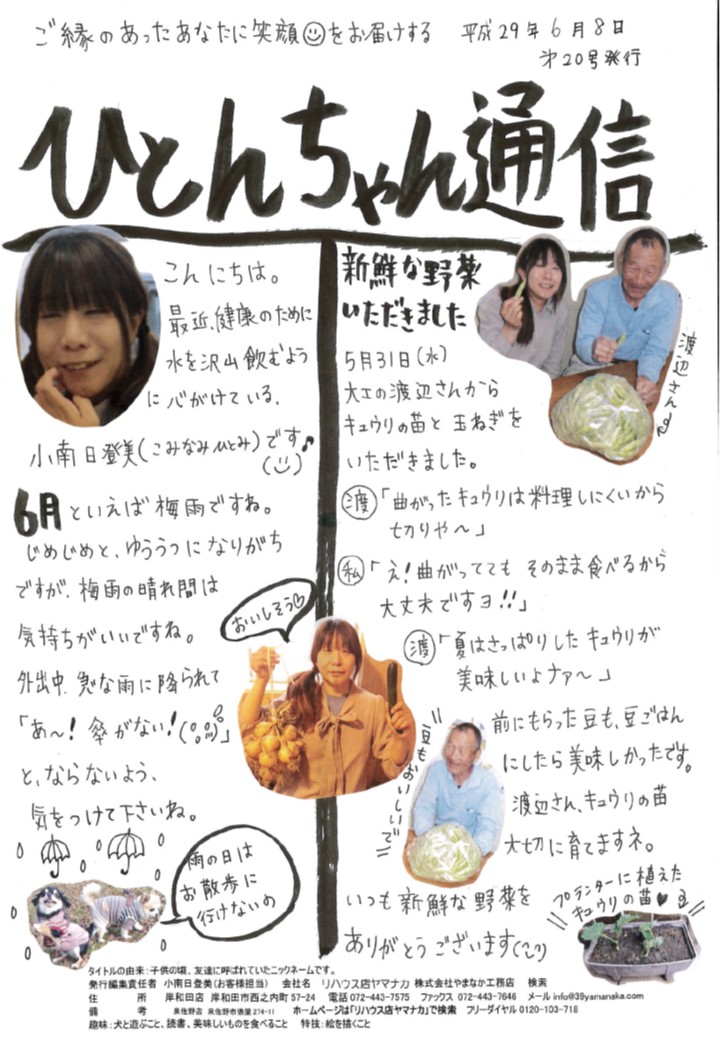 ご縁のあったあなたに笑顔をお届けする 平成29年6月8日
第20号発行
ひとみちゃん通信
こんにちは。
最近、健康のために
水を沢山飲むよう
に心がけている、
小南日登美(こみなみひとみ)です♪
6月といえば梅雨ですね。
じめじめと、ゆううつになりがち
ですが、梅雨の晴れ間は
気持ちがいいですね。
外出中、急な雨に降られて
「あ〜!傘がない!」
と、ならないよう、
気をつけて下さいね。
雨の日は
お散歩に
行けないの
おいしそう♡
新鮮な野菜
いただきました
渡辺さん
5月31日(水)
大工の渡辺さんから
キュウリの苗と玉ねぎを
いただきました。
渡「曲がったキュウリは料理しにくいから
切りや〜」
私「え!曲がってても そのまま食べるから
大丈夫ですヨ!!」
渡「夏はさっぱりしたキュウリが
美味しいよナァ〜」
豆もおいしいで
前にもらった豆も、豆ごはん
にしたら美味しかったです。
渡辺さん、キュウリの苗
大切に育てますネ。
いつも新鮮な野菜を
ありがとうございます
プランターに植えた
キュウリの苗♥
タイトルの由来:子供の頃、友達に呼ばれていたニックネームです。
発行編集責任者 小南日登美(お客様担当) 会社名 リハウス店ヤマナカ 株式会社やまなか工務店 検索
住 所 岸和田店 岸和田市西之内町57-24 電話072-443-7575 ファックス 072-443-7646 メール info@39yamanaka.com
備 考 泉佐野店 泉佐野市俵屋274-11 ホームページは「リハウス店ヤマナカ」で検索 フリーダイヤル0120-103-718
趣味:犬と遊ぶこと、読書、美味しいものを食べること 特技:絵を描くこと